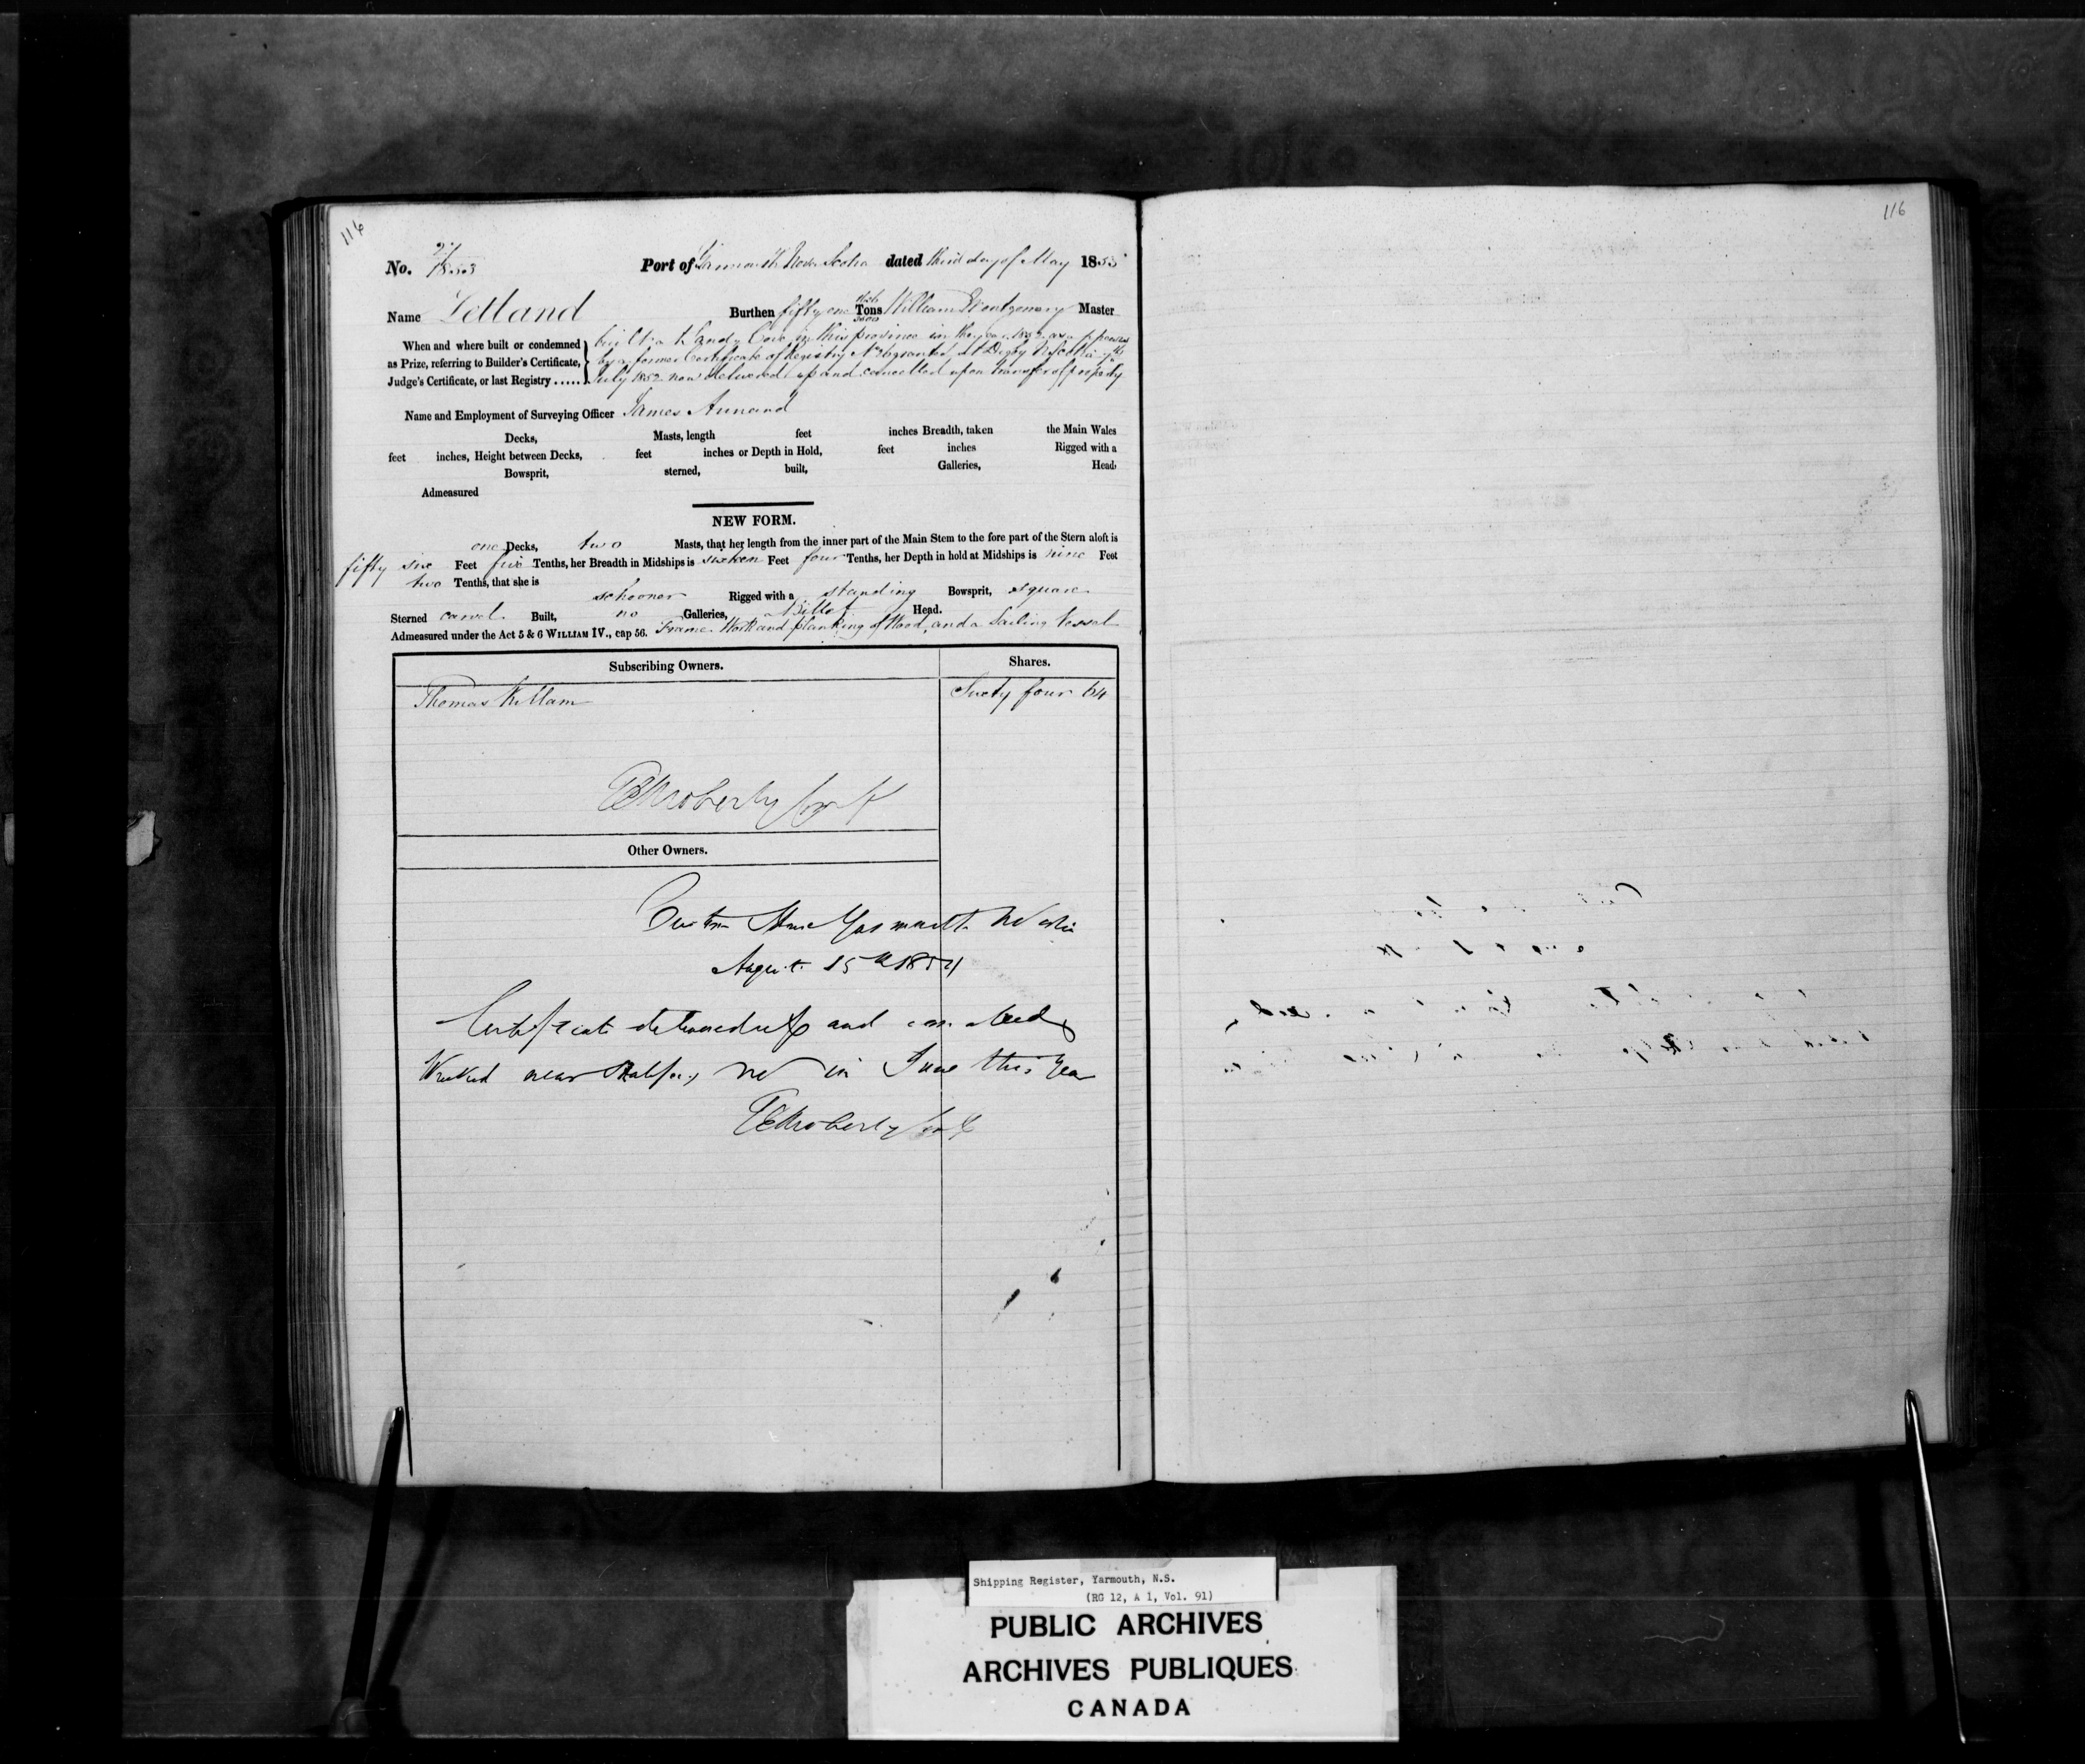 116
116
No. 21/1853 Port of Yarmouth Nova Scotia dated third day of May 1853
Name Letland Burthen fifty one Tons 3500 William Montgomery Master
When and where built or condemned
as Prize, referring to Builder's Certificate,
Judge's Certificate, or last Registry .....
built at Sandy Cove in this province in the year 1852 as appears
by a former Certificate of Registry granted at Digby
July 1852 now delivered up and cancelled upon transfer of property
Name and Employment of Surveying Officer James Annand
Decks, Masts, length feet inches Breadth, taken the Main Wales
feet inches, Height between Decks, feet inches or Depth in Hold, feet inches Rigged with a
Bowsprit, sterned, built, Galleries, Head.
Admeasured
NEW FORM.
one Decks, two Masts, that her length from the inner part of the Main Stem to the fore part of the Stern aloft is
fifty six Feet five Tenths, her Breadth in Midships is sixteen Feet four Tenths, her Depth in hold at Midships is nine Feet
two Tenths, that she is
schooner Rigged with a standing Bowsprit, square
Sterned carvel Built, no Galleries, a Billet Head.
Admeasured under the Act 5 & 6 WILLIAM IV., cap 56. Frame Work and planking of Wood, and a Sailing Vessel
Subscribing Owners. Shares.
Thomas Killam Sixty four 64
Other Owners.
Custom House Yarmouth
August 15th 1854
Certificate delivered up and cancelled
Wrecked near Halifax, NS in June this Year
Shipping Register, Yarmouth, N.S.
(RG 12, A 1, Vol. 91)
PUBLIC ARCHIVES
ARCHIVES PUBLIQUES
CANADA